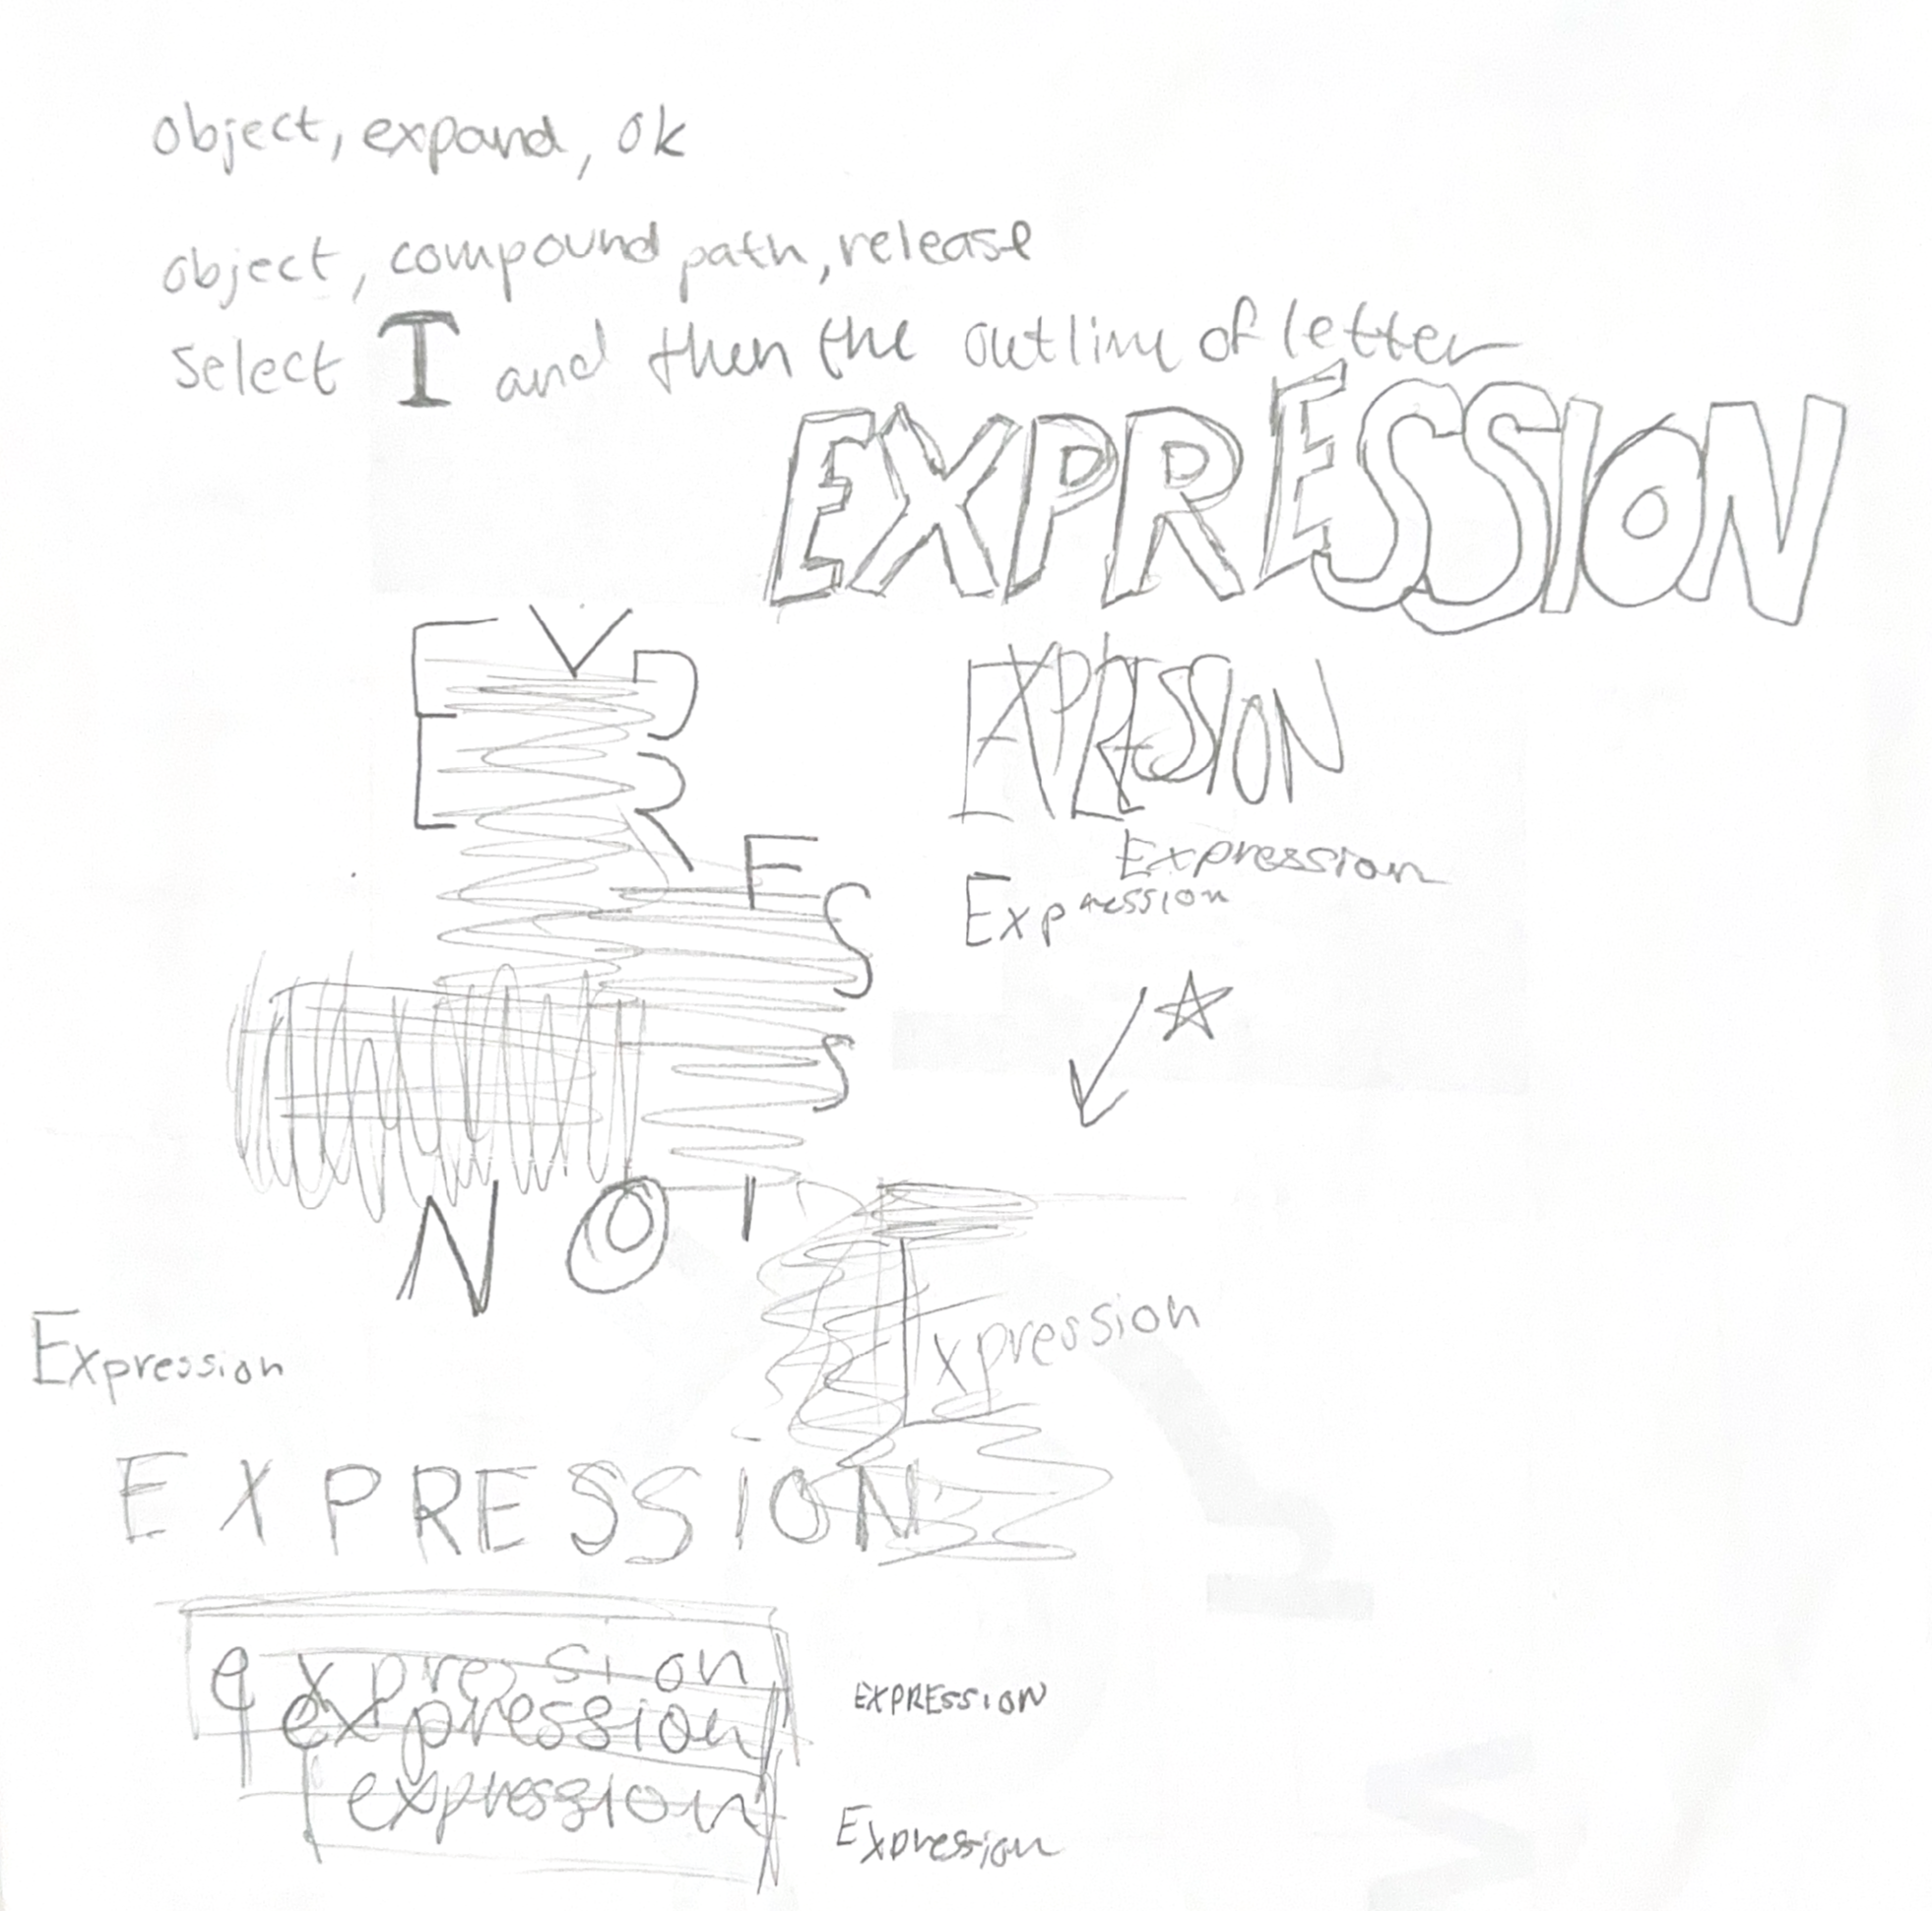 object, expand, ok
object, compound path, release
select T and then the outline of letter
EXPRESSION
EXPRESSION
EXPRESSION
Expression
Expression
Expression
xpression
EXPRESSION
expression
expression
expression
EXPRESSION
Expression